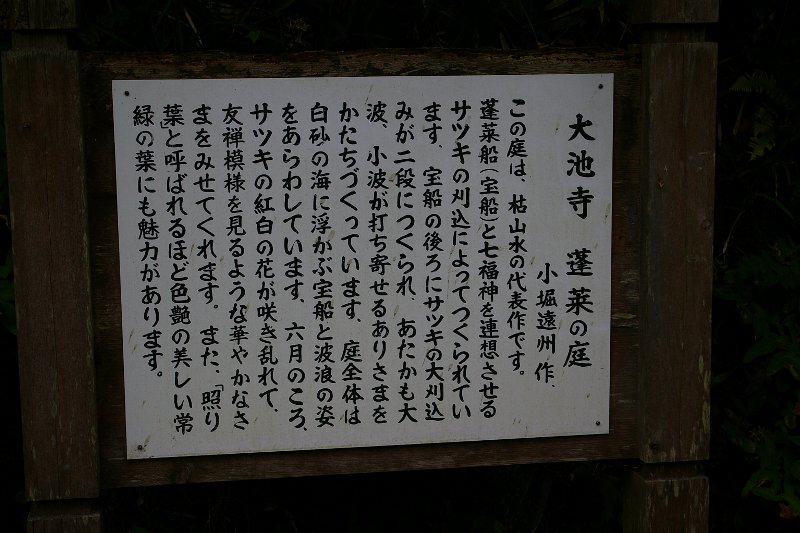 大池寺 蓬莱の庭
小堀遠州 作、
この庭は、枯山水の代表作です。
蓬莱船(宝船)と七福神を連想させる
サツキの刈込によってつくられてい
ます、宝船の後ろにサツキの大刈込
みが二段につくられ、あたかも大
波、小波が打ち寄せるありさまを
かたちづくっています、庭全体は
白砂の海に浮かぶ宝船と波浪の姿
をあらわしています、六月のころ、
サツキの紅白の花が咲き乱れて、
友禅模様を見るような華やかなさ
まをみせてくれます。また、「照り
葉」と呼ばれるほど色艶の美しい常
緑の葉にも魅力があります。